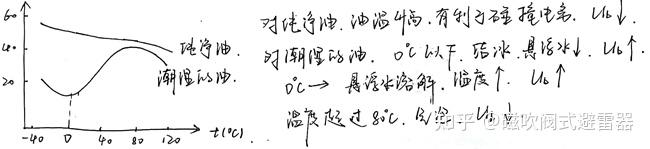 60
40
20
-40
0
40
80
120
t(°C)
纯净油.
潮湿的油.
对纯净油, 油温升高, 有利于碰撞电离 Ub↓.
对潮湿的油. 0°C以下. 结冰, 悬浮水↓. Ub↑.
0°C→ 悬浮水溶解, 温度↑. Ub↑
温度超过80°C, Ub↓
知乎 @磁吹阀式避雷器